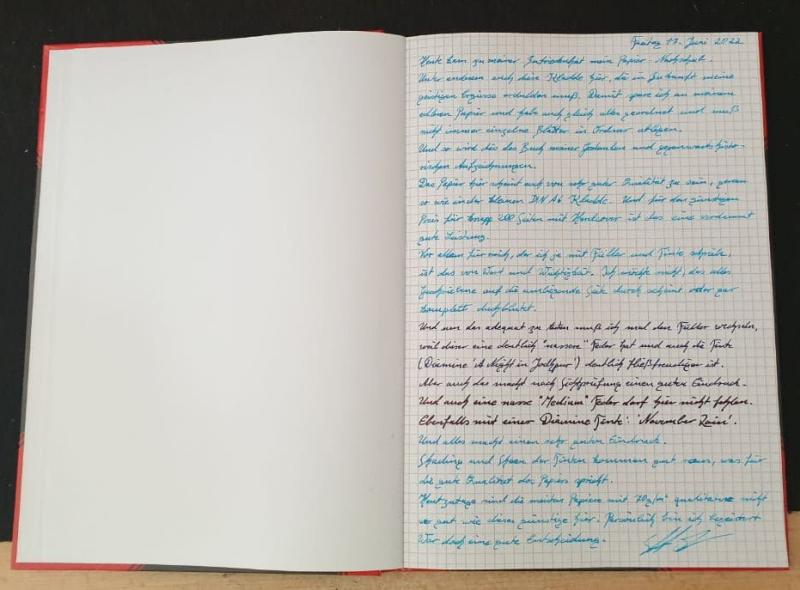 Freitag 17. Juni 2022
Heute kam zu meiner Zufriedenheit mein Papier-Nachschub.
Unter anderem auch diese Kladde hier, die in Zukunft meine
geistigen Ergüsse erdulden muß. Damit spare ich an meinem
edleren Papier und habe auch gleich alles geordnet und muß
nicht immer einzelne Blätter in Ordner ablegen.
Und so wird dies das Buch meiner Gedanken und gegenwartshisto-
rischen Aufzeichnungen.
Das Papier hier scheint auch von sehr guter Qualität zu sein, genau
so wie in der kleinen DIN A6 Kladde. Und für das günstigen
Preis für knapp 200 Seiten mit Hardcover ist das eine verdammt
gute Leistung.
Vor allem für mich, der ich je mit Füller und Tinte schreibe,
ist das von Wert und Wichtigkeit. Ich möchte nicht, das alles
Geschriebene auf die umliegende Seite durch scheint oder gar
komplett durchblutet.
Und um das adequat zu testen muß ich mal den Füller wechseln,
weil dieser eine deutlich "nassere" Feder hat und auch die Tinte
(Diamine 'A Night in Jodhpur') deutlich fließfreudiger ist.
Aber auch das macht nach Sichtprüfung einen guten Eindruck.
Und auch eine nasse "Medium" Feder darf hier nicht fehlen.
Ebenfalls mit einer Diamine Tinte: 'November Rain'.
Und alles macht einen sehr guten Eindruck.
Shading und Sheen der Tinten kommen gut raus, was für
die gute Qualität des Papiers spricht.
Heutzutage sind die meisten Papiere mit 70g/m² qualitative nicht
so gut wie dieses günstige hier. Persönlich bin ich begeistert
War doch eine gute Entscheidung.